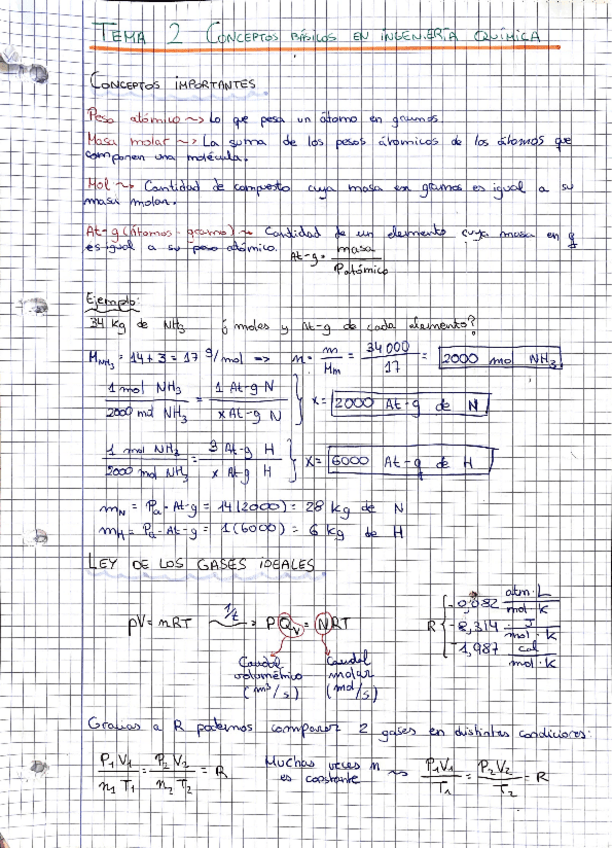 TEMA 2 CONCEPTOS BÁSICOS EN INGENIERÍA QUÍMICA
CONCEPTOS IMPORTANTES
Peso atómico ~> Lo que pesa un átomo en gramos
Masa molar ~> La suma de los pesos átomicos de los átomos que
componen una molécula.
Mol ~> Cantidad de compuesto cuya masa en gramos es igual a su
masa molar.
At-g (átomos-gramo) ~> Cantidad de un elemento cuya masa en g
es igual a su peso atómico. At-g = masa / Patómico
Ejemplo:
34 Kg de NH3 ¿ moles y At-g de cada elemento?
M NH3 = 14 + 3 = 17 g/mol => n = m / Mm = 34 000 / 17 = 2000 mol NH3
1 mol NH3 / 2000 mol NH3 = 1 At-g N / x At-g N } x = 2000 At-g de N
1 mol NH3 / 2000 mol NH3 = 3 At-g H / x At-g H } x = 6000 At-g de H
mN = Pa · At-g = 14 (2000) = 28 kg de N
mH = Pa · At-g = 1 (6000) = 6 kg de H
LEY DE LOS GASES IDEALES
pV = nRT 1/t => P Qv = NRT
Caudal volumétrico (m³/s)
Caudal molar (mol/s)
R { - 0,082 atm·L / mol·K
- 8,314 J / mol·K
- 1,987 cal / mol·K
Gracias a R podemos comparar 2 gases en distintas condiciones:
P1 V1 / n1 T1 = P2 V2 / n2 T2 = R Muchas veces n es constante ~> P1 V1 / T1 = P2 V2 / T2 = R